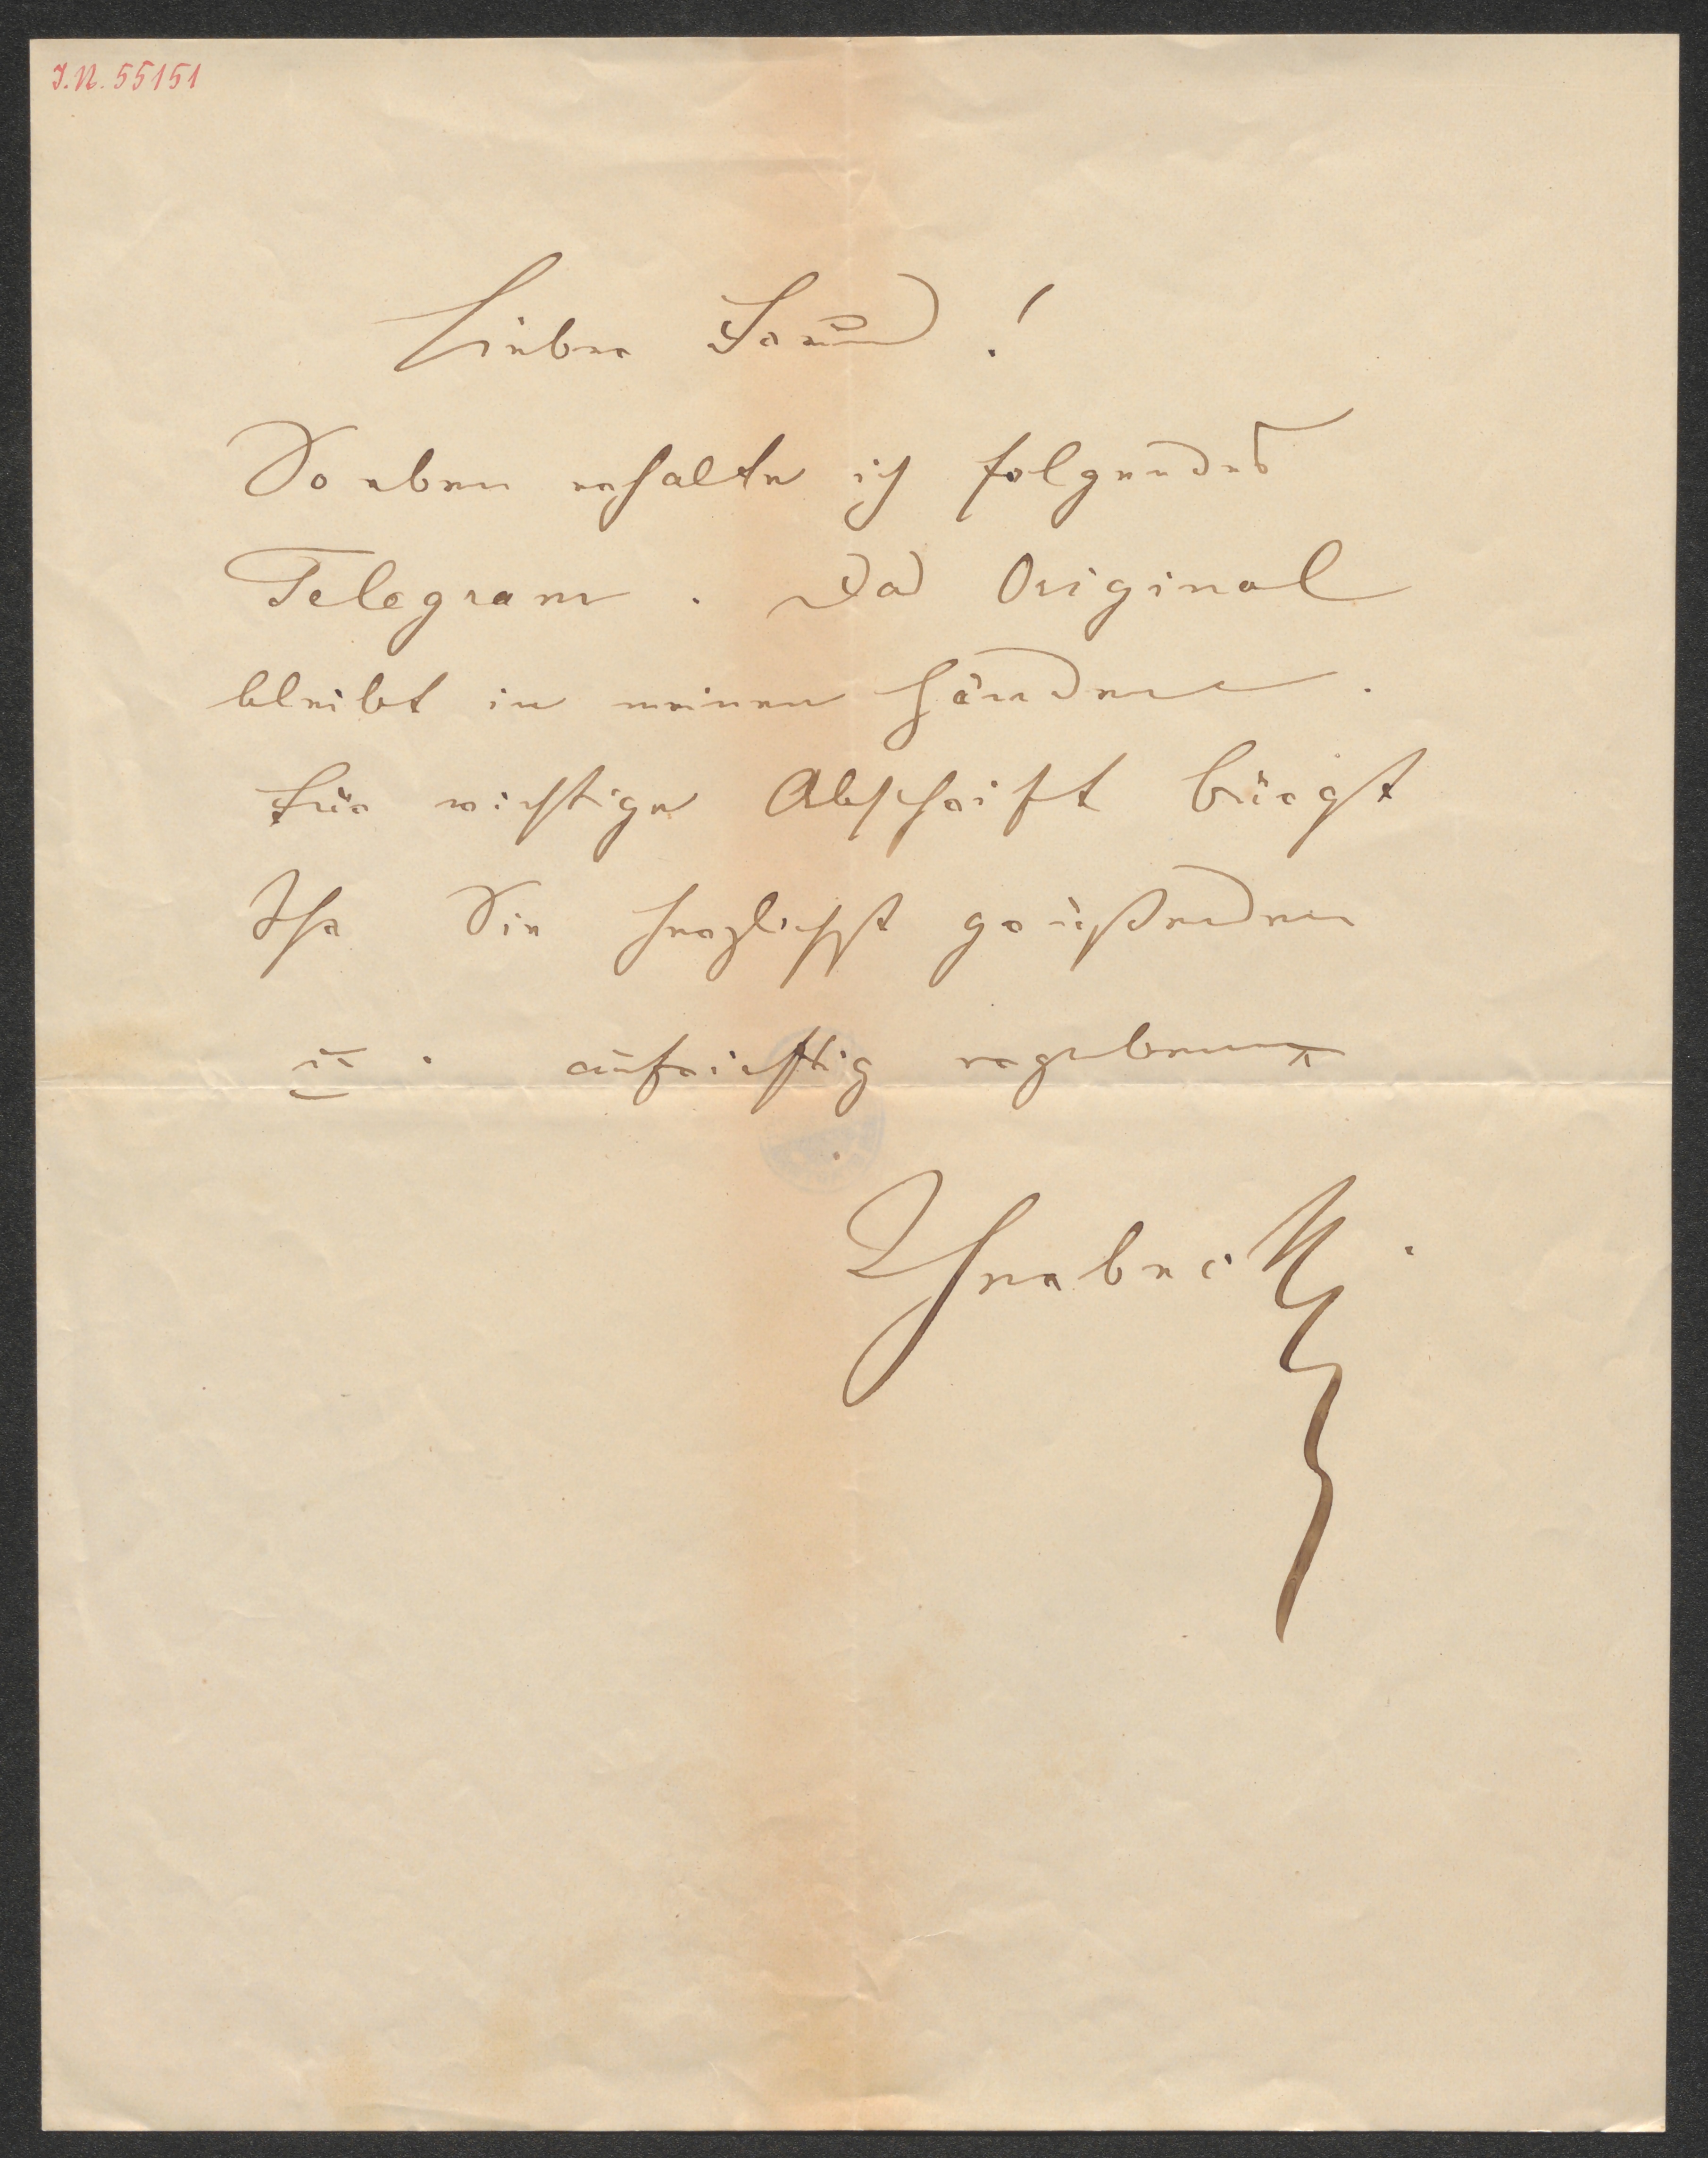 I.N. 55151
Lieber Freund!
So eben erhalte ich folgendes
Telegram. Das Original
bleibt in meinen Händen.
Für richtige Abschrift bürgt
Ihr Sie herzlichst grüßender
u. aufrichtig ergebener